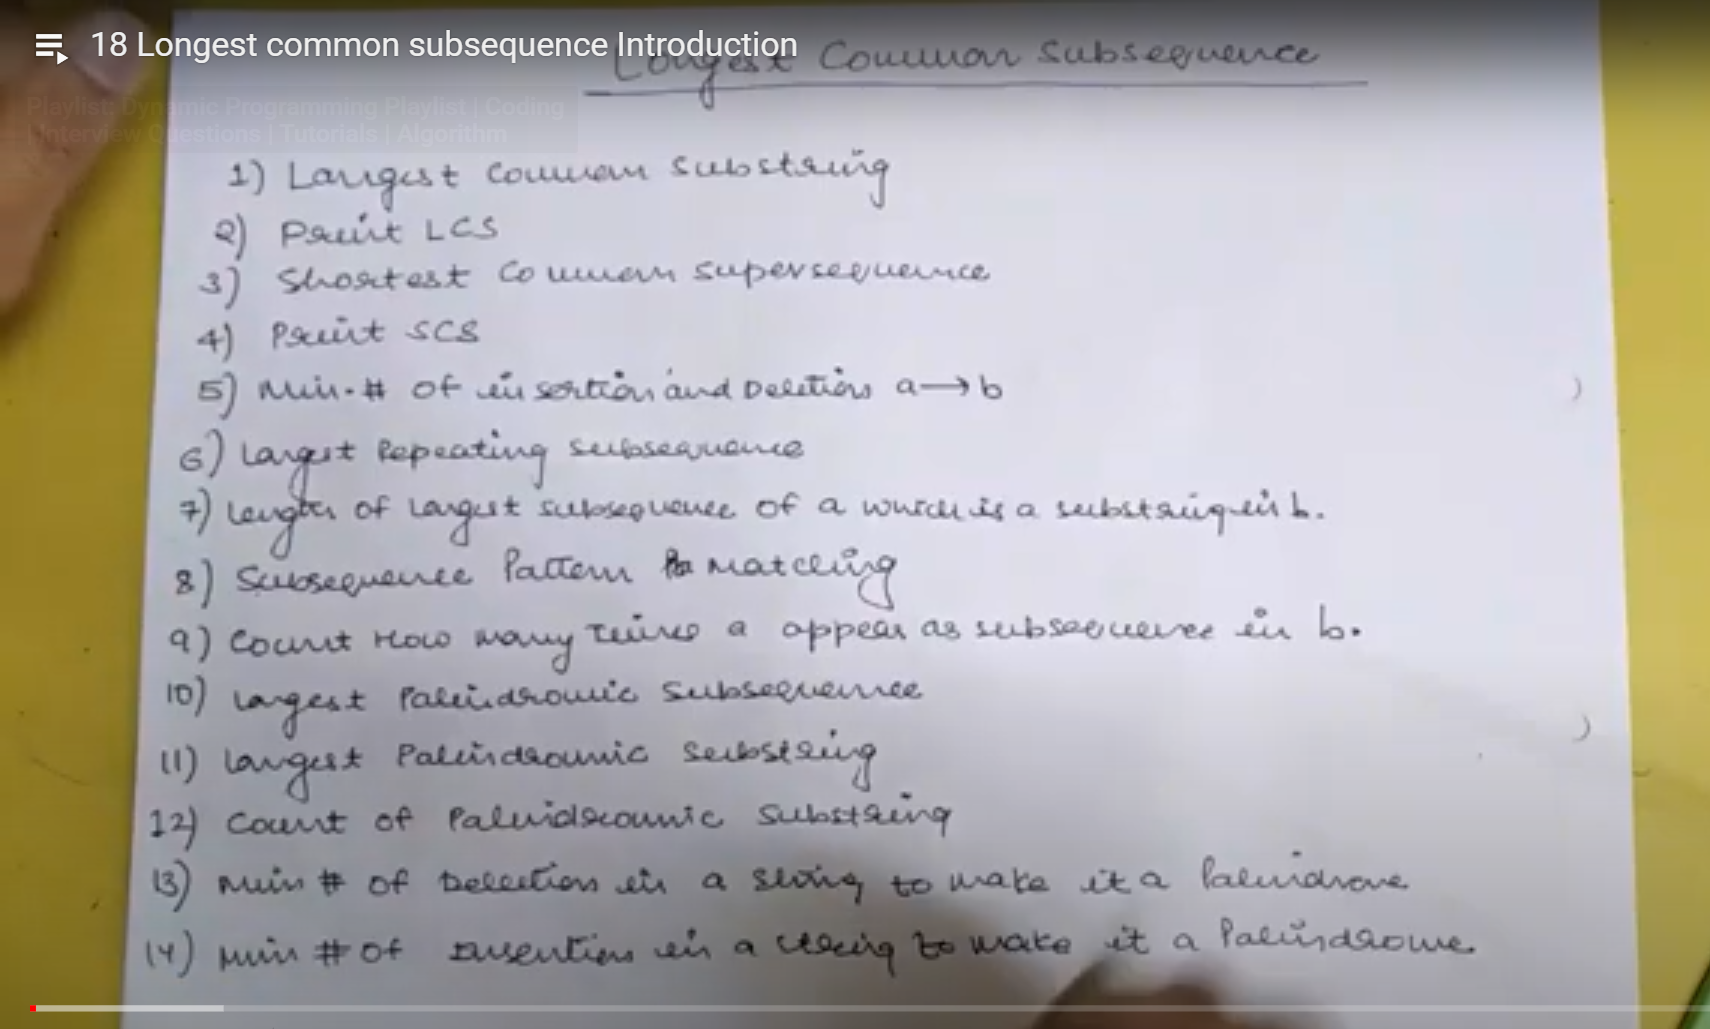 18 Longest common subsequence Introduction
Longest Common Subsequence
Playlist: Dynamic Programming Playlist | Coding
Interview Questions | Tutorials | Algorithm
1) Largest Common Substring
2) Print LCS
3) Shortest Common supersequence
4) Print SCS
5) Min. # of insertion and Deletion a → b
6) Largest Repeating subsequence
7) Length of largest subsequence of a which is a substring in b.
8) Subsequence Pattern Matching
9) Count How many Times a appear as subsequence in b.
10) Largest Palindromic Subsequence
11) Largest Palindromic Substring
12) Count of Palindromic Substring
13) Min # of Deletion in a string to make it a Palindrome
14) Min # of Insertion in a string to make it a Palindrome